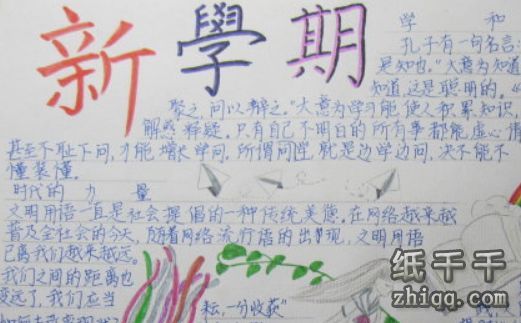 新學期
学 和
孔子有一句名言:
是知也。"大意为知道
知道,这是聪明的。"
聚之,问以辩之。"大意为学习能使人积累知识,
解惑释疑。只有自己不明白的所有事都能虚心请
甚至不耻下问,才能增长学问,所谓问学,就是边学边问,决不能不
懂装懂。
时代的 力 量
文明用语一直是社会提倡的一种传统美德。在网络越来越
普及全社会的今天,随着网络流行语的出现,文明用语
已离我们越来越远。
我们之间的距离也
变远了,我们应当
耘,一分收获"
纸千千
zhiqq.com